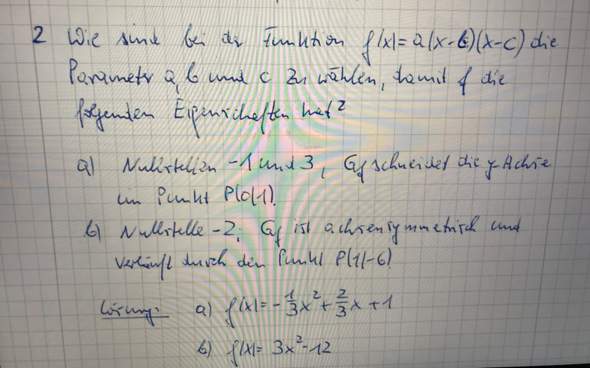 2 Wie sind bei der Funktion f(x)=a(x-b)(x-c) die
Parameter a, b und c zu wählen, damit f die
folgenden Eigenschaften hat?
a) Nullstellen -1 und 3, Gf schneidet die y Achse
im Punkt P(0|1).
b) Nullstelle -2; Gf ist achsensymmetrisch und
verläuft durch den Punkt P(1|-6)
Lösung: a) f(x)= -1/3x²+2/3x+1
b) f(x)= 3x²-12